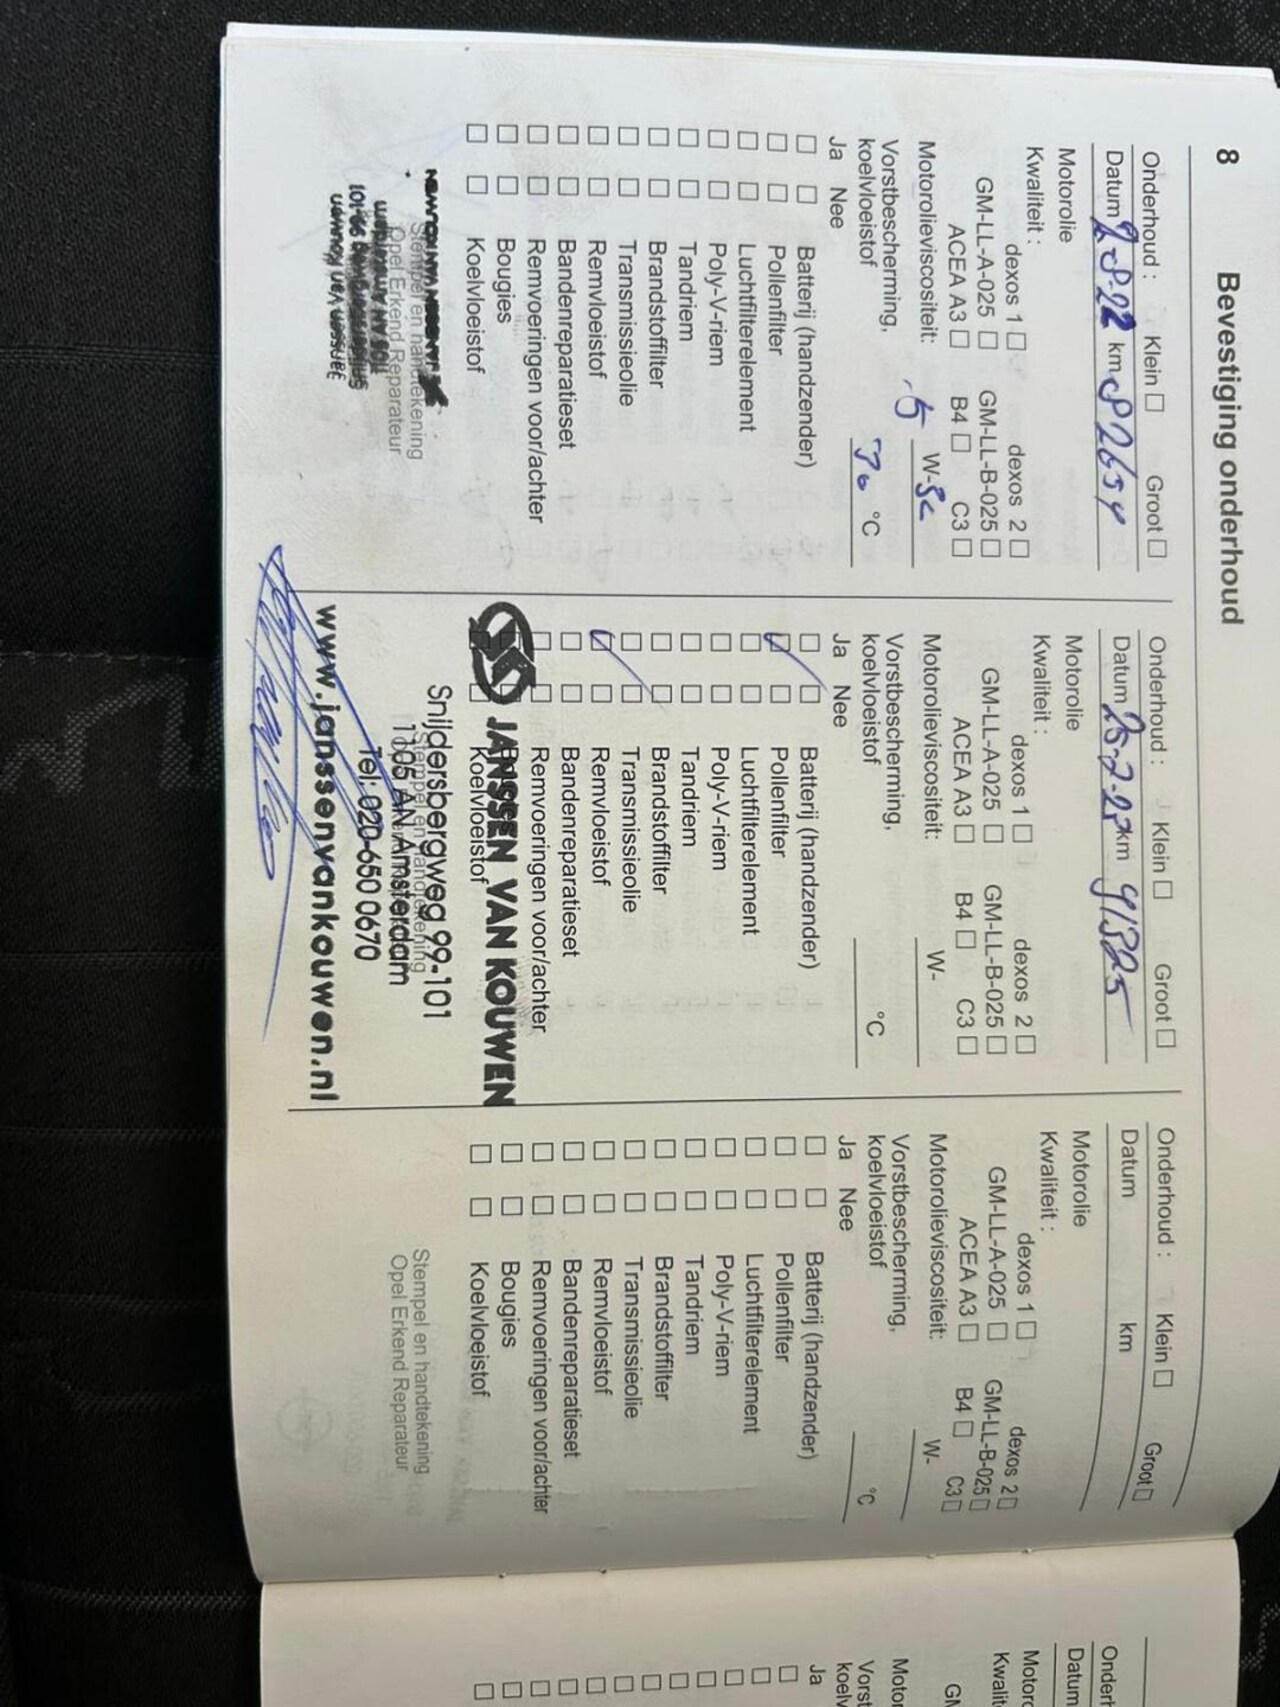 8 Bevestiging onderhoud
Onderhoud : Klein ☐ Groot ☐
Datum 2-8-22 km 82654
Motorolie
Kwaliteit :
dexos 1 ☐ dexos 2 ☐
GM-LL-A-025 ☐ GM-LL-B-025 ☐
ACEA A3 ☐ B4 ☐ C3 ☐
Motorolieviscositeit: 5 W-30
Vorstbescherming,
koelvloeistof °C
Ja Nee
☐ ☐ Batterij (handzender)
☐ ☐ Pollenfilter
☐ ☐ Luchtfilterelement
☐ ☐ Poly-V-riem
☐ ☐ Tandriem
☐ ☐ Brandstoffilter
☐ ☐ Transmissieolie
☐ ☐ Remvloeistof
☐ ☐ Bandenreparatieset
☐ ☐ Remvoeringen voor/achter
☐ ☐ Bougies
☐ ☐ Koelvloeistof
Stempel en handtekening
Opel Erkend Reparateur
Onderhoud : Klein ☐ Groot ☐
Datum 25-2-23 km 91325
Motorolie
Kwaliteit :
dexos 1 ☐ dexos 2 ☐
GM-LL-A-025 ☐ GM-LL-B-025 ☐
ACEA A3 ☐ B4 ☐ C3 ☐
Motorolieviscositeit: W-
Vorstbescherming,
koelvloeistof °C
Ja Nee
☐ ☐ Batterij (handzender)
☑ ☐ Pollenfilter
☐ ☐ Luchtfilterelement
☐ ☐ Poly-V-riem
☐ ☐ Tandriem
☐ ☐ Brandstoffilter
☐ ☐ Transmissieolie
☑ ☐ Remvloeistof
☐ ☐ Bandenreparatieset
☐ ☐ Remvoeringen voor/achter
JANSSEN VAN KOUWEN
☐ ☐ Koelvloeistof
Snijdersbergweg 99-101
Stempel en handtekening
1105 AN Amsterdam
Tel: 020-650 0670
www.janssenvankouwen.nl
Onderhoud : Klein ☐ Groot ☐
Datum km
Motorolie
Kwaliteit :
dexos 1 ☐ dexos 2 ☐
GM-LL-A-025 ☐ GM-LL-B-025 ☐
ACEA A3 ☐ B4 ☐ C3 ☐
Motorolieviscositeit: W-
Vorstbescherming,
koelvloeistof °C
Ja Nee
☐ ☐ Batterij (handzender)
☐ ☐ Pollenfilter
☐ ☐ Luchtfilterelement
☐ ☐ Poly-V-riem
☐ ☐ Tandriem
☐ ☐ Brandstoffilter
☐ ☐ Transmissieolie
☐ ☐ Remvloeistof
☐ ☐ Bandenreparatieset
☐ ☐ Remvoeringen voor/achter
☐ ☐ Bougies
☐ ☐ Koelvloeistof
Stempel en handtekening
Opel Erkend Reparateur
Onderh
Datum
Motor
Kwalit
GM
Motor
Vorst
koelv
Ja